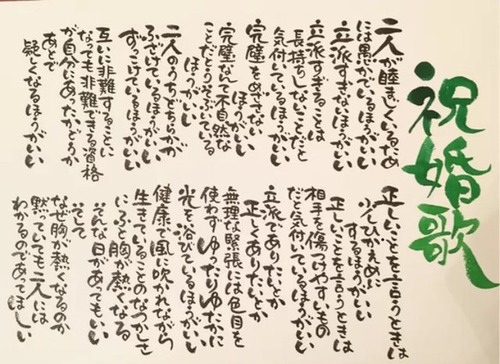 祝婚歌
二人が睦まじくいるため
には愚かでいるほうがいい
立派すぎないほうがいい
立派すぎることは
長持ちしないことだと
気付いているほうがいい
完璧をめざさない
ほうがいい
完璧なんて不自然な
ことだとうそぶいている
ほうがいい
二人のうちどちらかが
ふざけているほうがいい
ずっこけているほうがいい
互いに非難することに
なっても非難できる資格
が自分にあったかどうか
あとで
疑しくなるほうがいい
正しいことを言うときは
少しひかえめに
するほうがいい
正しいことを言うときは
相手を傷つけやすいもの
だと気付いているほうがいい
立派でありたいとか
正しくありたいとか
無理な緊張には色目を
使わず ゆったりゆたかに
光を浴びているほうがいい
健康で風に吹かれながら
生きていることのなつかしさ
にふと胸が熱くなる
そんな日があってもいい
そして
なぜ胸が熱くなるのか
黙っていても二人には
わかるのであってほしい